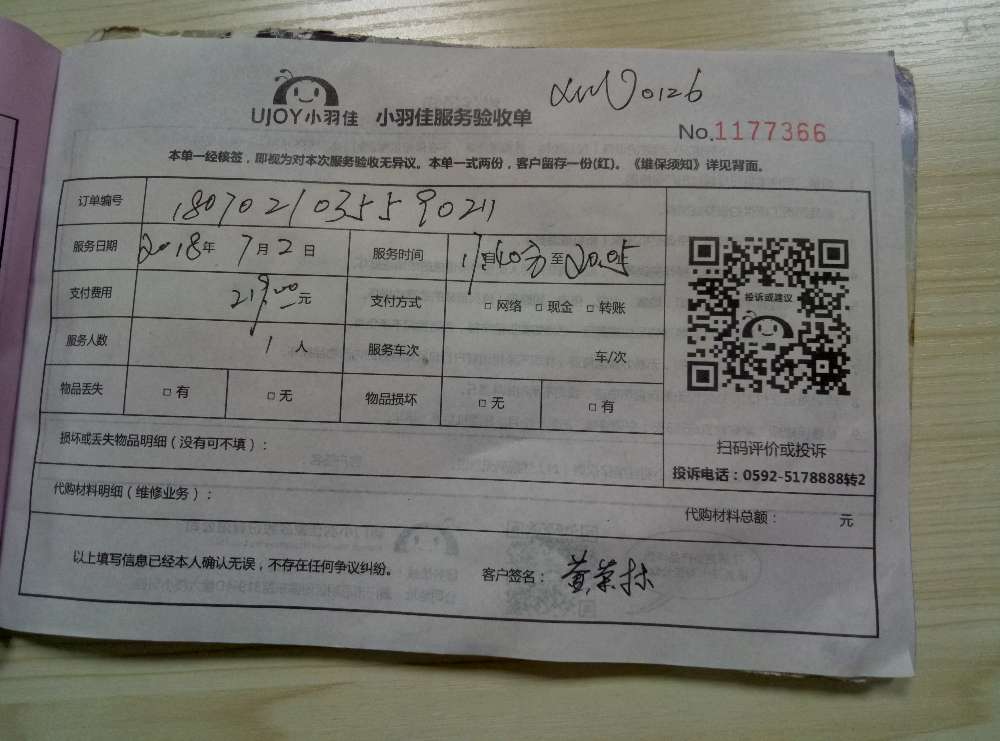 0126
UJOY小羽佳 小羽佳服务验收单
No.1177366
本单一经核签，即视为对本次服务验收无异议。本单一式两份，客户留存一份(红)。《维保须知》详见背面。
订单编号 18070210355590211
服务日期 2018年 7月2日 服务时间 自 至 20:05
支付费用 219.00元 支付方式 □ 网络 □ 现金 □ 转账
投诉或建议
服务人数 1 人 服务车次 车/次
物品丢失 □ 有 □ 无 物品损坏 □ 无 □ 有
损坏或丢失物品明细（没有可不填）：
扫码评价或投诉
投诉电话：0592-5178888转2
代购材料明细（维修业务）：
代购材料总额： 元
以上填写信息已经本人确认无误，不存在任何争议纠纷。
客户签名：黄荣标